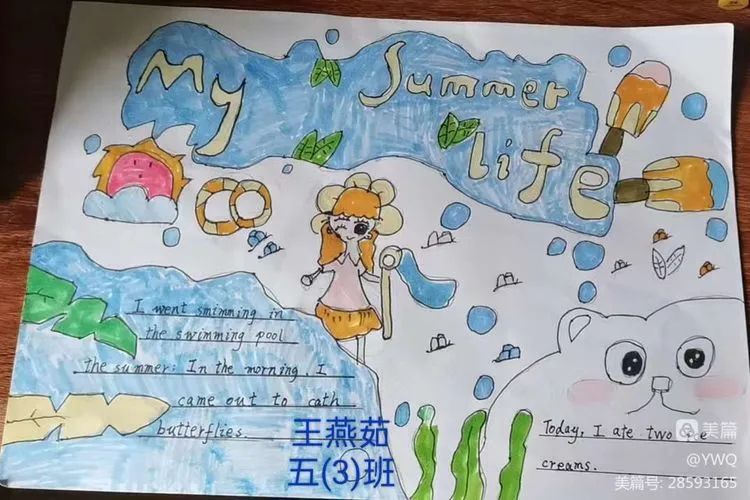 My Summer
life
I went smimming in
the swimming pool
the summer: In the morning, I
came out to cath
butterflies.
王燕茹
五(3)班
Today, I ate two ice
creams.
美篇
@YWQ
美篇号: 28593165